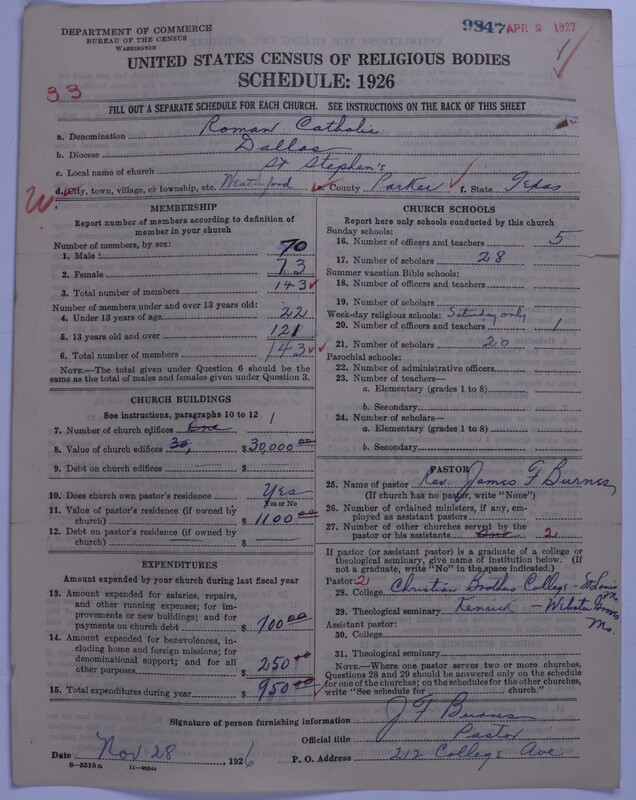 DEPARTMENT OF COMMERCE
BUREAU OF THE CENSUS
WASHINGTON
9847 APR 2 1927
1
UNITED STATES CENSUS OF RELIGIOUS BODIES
SCHEDULE: 1926
33
FILL OUT A SEPARATE SCHEDULE FOR EACH CHURCH. SEE INSTRUCTIONS ON THE BACK OF THIS SHEET
a. Denomination Roman Catholic
b. Diocese Dallas
c. Local name of church St Stephen's
W. d. City, town, village, or township, etc. Weatherford e. County Parker f. State Texas
MEMBERSHIP
Report number of members according to definition of
member in your church
Number of members, by sex:
1. Male 70
2. Female 73
3. Total number of members 143
Number of members under and over 13 years old:
4. Under 13 years of age 22
5. 13 years old and over 121
6. Total number of members 143
NOTE.—The total given under Question 6 should be
the same as the total of males and females given under Question 3.
CHURCH BUILDINGS
See instructions, paragraphs 10 to 12
7. Number of church edifices One 1
8. Value of church edifices 30, $ 30,000 00
9. Debt on church edifices $
10. Does church own pastor's residence Yes
Yes or No
11. Value of pastor's residence (if owned by
church) $ 1100 00
12. Debt on pastor's residence (if owned by
church) $
EXPENDITURES
Amount expended by your church during last fiscal year
13. Amount expended for salaries, repairs,
and other running expenses; for im-
provements or new buildings; and for
payments on church debt $ 700 00
14. Amount expended for benevolences, in-
cluding home and foreign missions; for
denominational support; and for all
other purposes $ 250 00
15. Total expenditures during year $ 950 00
CHURCH SCHOOLS
Report here only schools conducted by this church
Sunday schools:
16. Number of officers and teachers 5
17. Number of scholars 28
Summer vacation Bible schools:
18. Number of officers and teachers
19. Number of scholars
Week-day religious schools: Saturday only
20. Number of officers and teachers 1
21. Number of scholars 20
Parochial schools:
22. Number of administrative officers
23. Number of teachers—
a. Elementary (grades 1 to 8)
b. Secondary
24. Number of scholars—
a. Elementary (grades 1 to 8)
b. Secondary
PASTOR
25. Name of pastor Rev. James F Burnes
(If church has no pastor, write "None")
26. Number of ordained ministers, if any, em-
ployed as assistant pastors
27. Number of other churches served by the
pastor or his assistants One 2
If pastor (or assistant pastor) is a graduate of a college or
theological seminary, give name of institution below. (If
not a graduate, write "No" in the space indicated.)
Pastor: 2
28. College Christian Brothers College - St Louis Mo.
29. Theological seminary Kenrick - Webster Groves Mo.
Assistant pastor:
30. College
31. Theological seminary
NOTE.—Where one pastor serves two or more churches,
Questions 28 and 29 should be answered only on the schedule
for one of the churches; on the schedules for the other churches,
write "See schedule for church."
Signature of person furnishing information J F Burnes
Official title Pastor
Date Nov 28, 1926 P. O. Address 212 College Ave
8—5518a 11—9584a